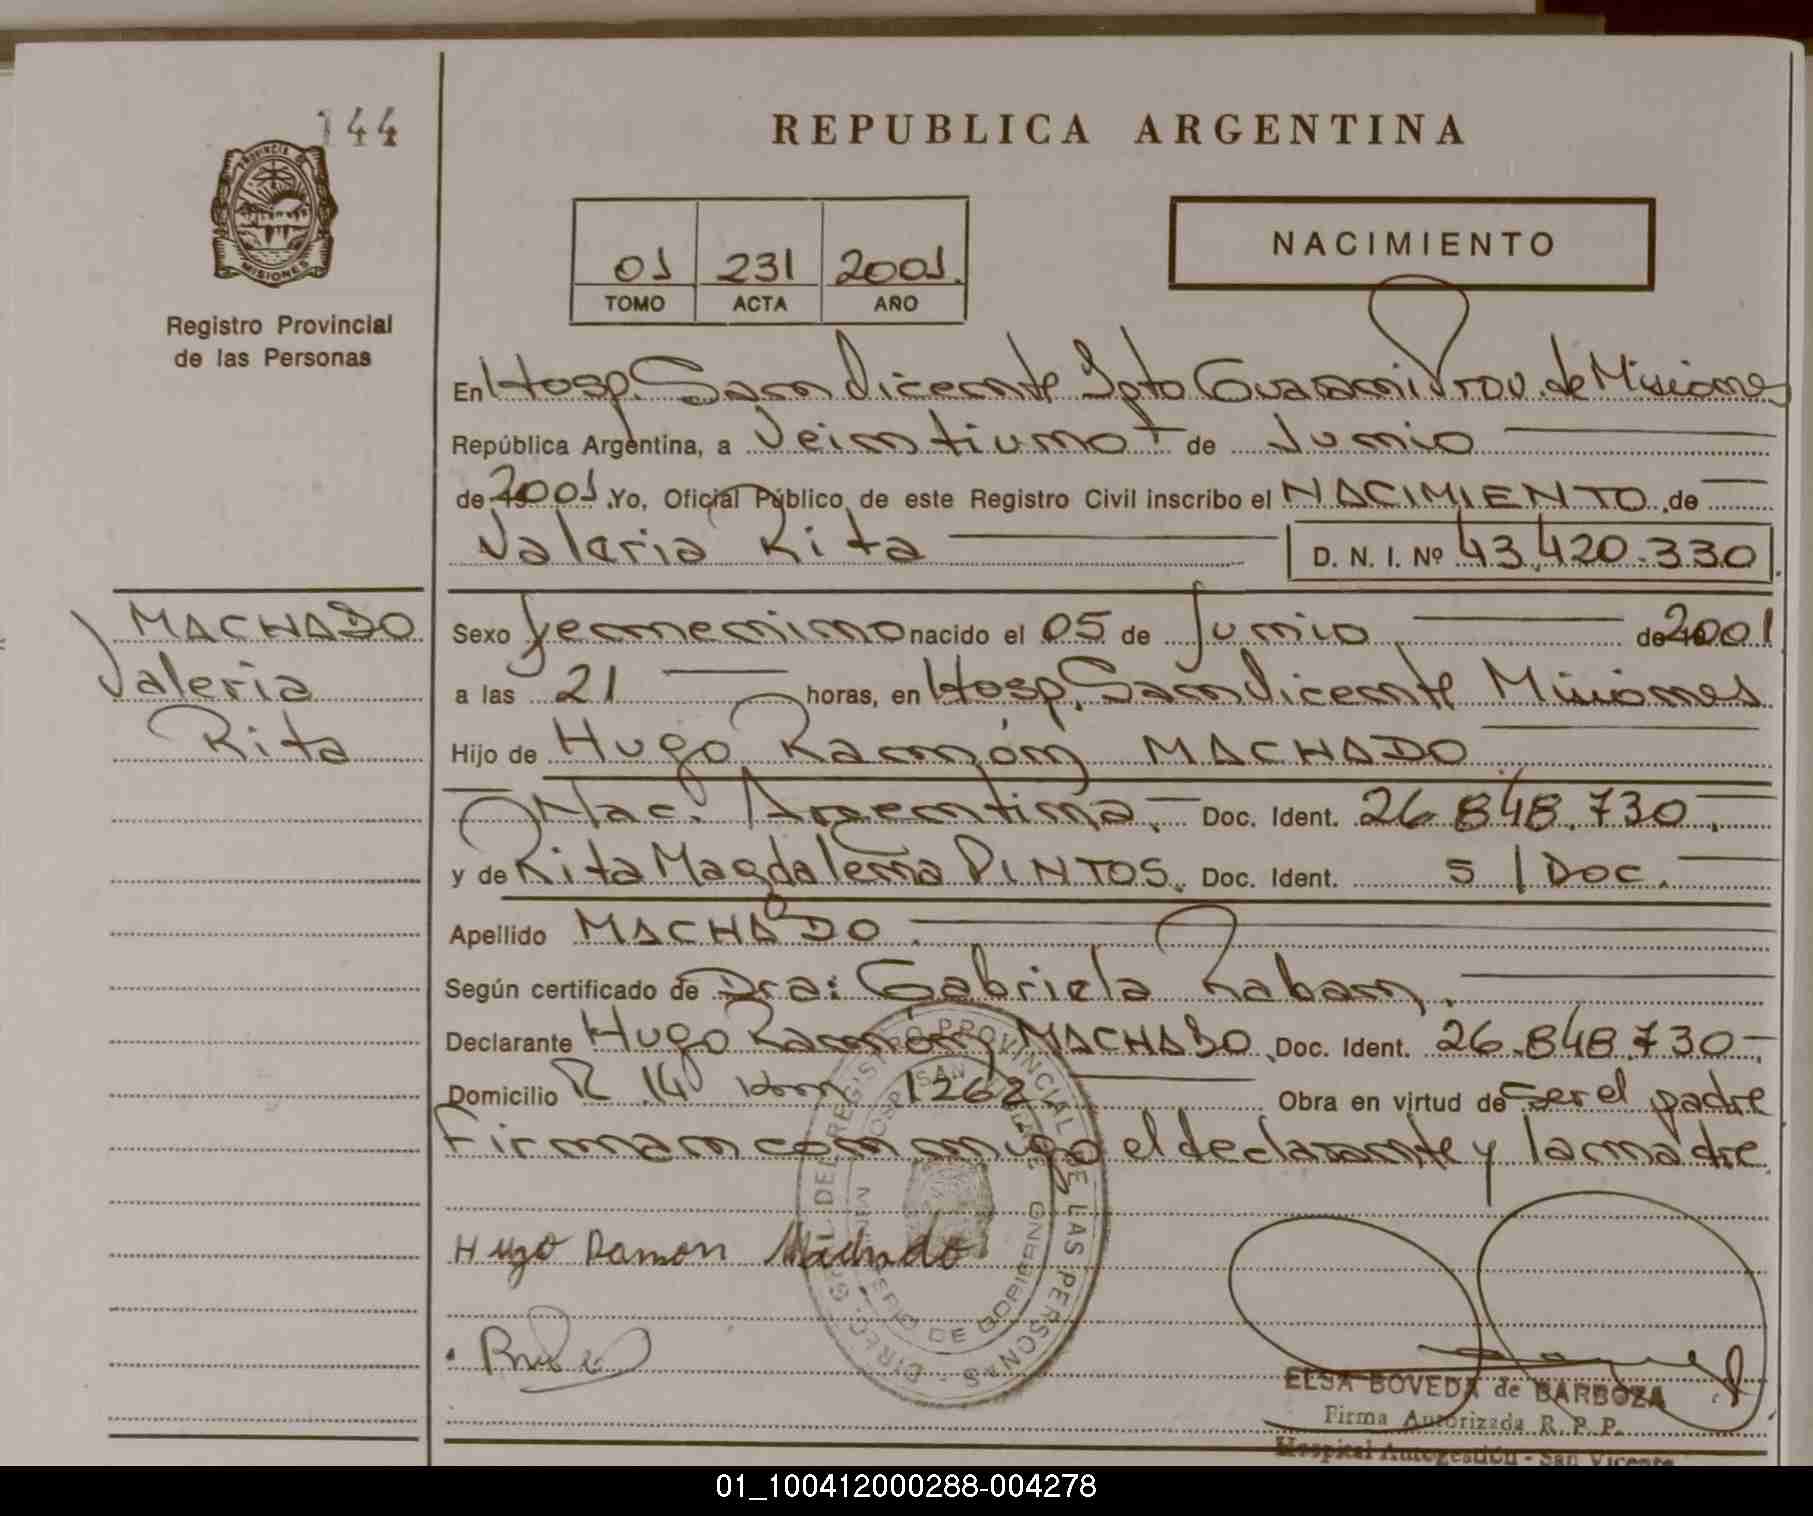 144
REPUBLICA ARGENTINA
PROVINCIA DE
MISIONES
Registro Provincial
de las Personas
01 231 2001.
TOMO ACTA AÑO
NACIMIENTO
En Hosp. San Vicente Dpto Guaraní Prov. de Misiones
República Argentina, a Veintiuno de Junio
de 2001 .Yo, Oficial Público de este Registro Civil inscribo el NACIMIENTO de
Valeria Rita D. N. I. Nº 43.420.330
MACHADO
Valeria
Rita
Sexo femenino nacido el 05 de Junio de 2001
a las 21 horas, en Hosp. San Vicente Misiones
Hijo de Hugo Ramón MACHADO
Nac. Argentina. Doc. Ident. 26.848.730.
y de Rita Magdalena PINTOS. Doc. Ident. S/Doc.
Apellido MACHADO.
Según certificado de Dra: Gabriela Raban.
Declarante Hugo Ramón MACHADO Doc. Ident. 26.848.730-
Domicilio R 14 Km 1262 Obra en virtud de ser el padre
Firman conmigo el declarante y la madre
Hugo Ramon Machado
DIRECC. GRAL. DEL REGISTRO PROVINCIAL DE LAS PERSONAS
MINISTERIO DE GOBIERNO
ELSA BOVEDA de BARBOZA
Firma Autorizada R. P. P.
Hospital Autogestión - San Vicente
01_100412000288-004278